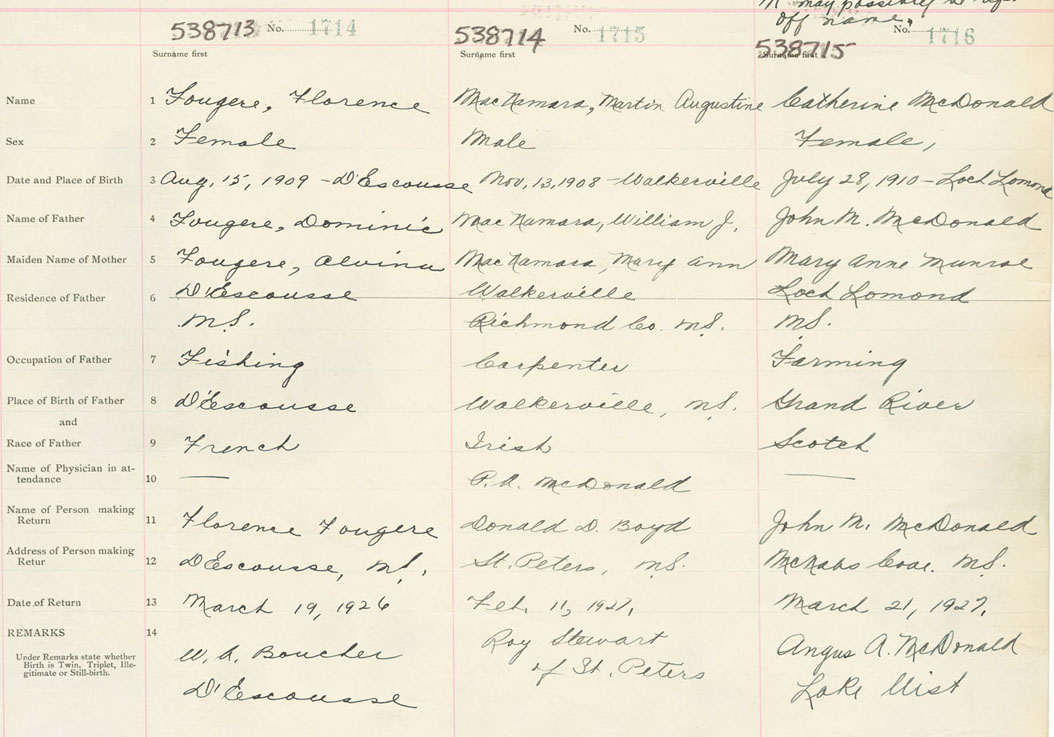 M may possibly be
off name.
538713 No. 1714
538714 No. 1715
538715 No. 1716
Surname first
Surname first
Surname first
Name 1 Fougere, Florence MacNamara, Martin Augustine Catherine McDonald
Sex 2 Female Male Female,
Date and Place of Birth 3 Aug, 15, 1909 - D'Escousse Nov, 13, 1908 - Walkerville July 28, 1910 - Loch Lomond
Name of Father 4 Fougere, Dominic MacNamara, William J. John M. McDonald
Maiden Name of Mother 5 Fougere, Alvina MacNamara, Mary Ann Mary Anne Munroe
Residence of Father 6 D'Escousse Walkerville Loch Lomond
N.S. Richmond Co. N.S. N.S.
Occupation of Father 7 Fishing Carpenter Farming
Place of Birth of Father 8 D'Escousse Walkerville, N.S. Grand River
and
Race of Father 9 French Irish Scotch
Name of Physician in at-
tendance 10 — P.A. McDonald —
Name of Person making
Return 11 Florence Fougere Donald D. Boyd John M. McDonald
Address of Person making
Retur 12 D'Escousse, N.S. St. Peters, N.S. McNabs Cove. N.S.
Date of Return 13 March 19, 1926 Feb. 11, 1927, March 21, 1927,
REMARKS 14
Under Remarks state whether
Birth is Twin, Triplet, Ille-
gitimate or Still-birth.
W. A. Boucher
D'Escousse
Roy Stewart
of St. Peters
Angus A. McDonald
Lake Uist